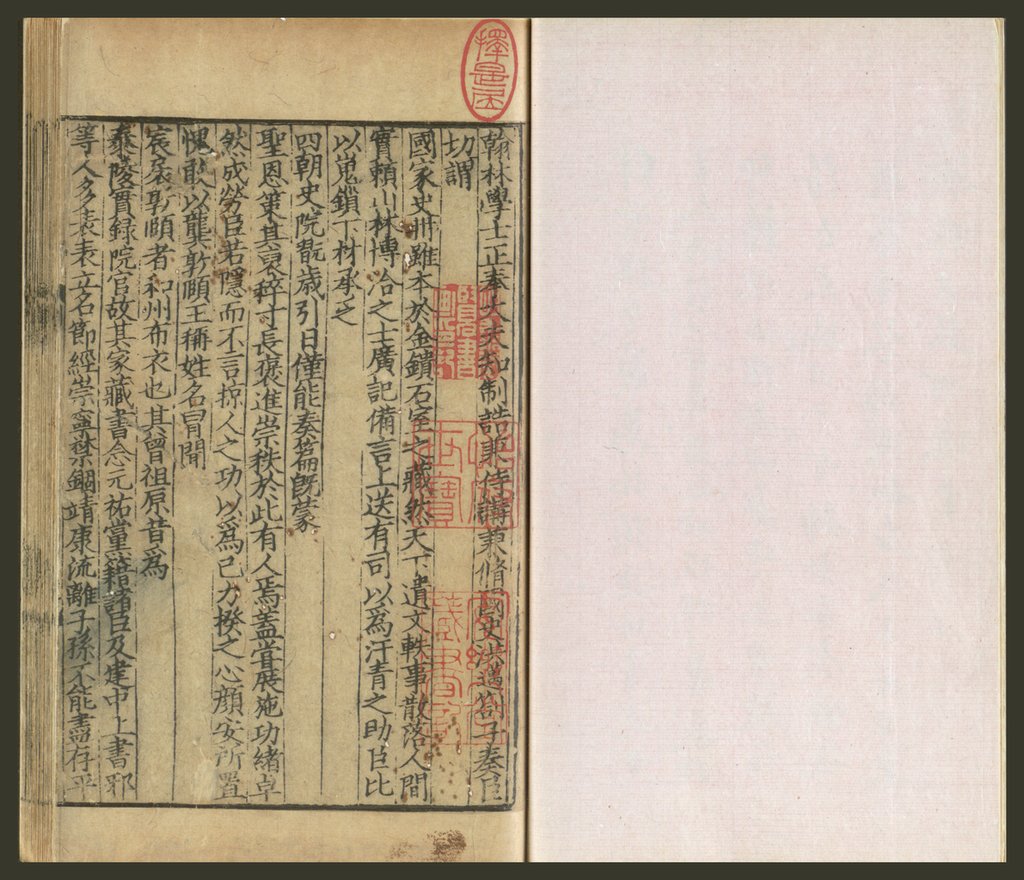 翰林學士正奉大夫知制誥兼侍講兼脩國史洪邁劄子奏臣
切謂
國家史冊雖本於金鎖石室之藏然天下遺文軼事散落人間
實賴山林博洽之士廣記備言上送有司以爲汗青之助臣比
以嵬鎖下材承乏
四朝史院翫歲引日僅能奏篇旣蒙
聖恩策其衰稡寸長褒進崇秩於此有人焉蓋嘗展施功緒卓
然成勞臣若隱而不言掠人之功以爲己力揆之心顔安所置
愧敢以龔敦頤王稱姓名冒聞
宸扆敦頤者和州布衣也其曾祖原昔爲
泰陵實録院官故其家藏書念元祐黨籍諸臣及建中上書邪
等人多表表立名節經崇寧禁錮靖康流離子孫不能盡存平
擇是居